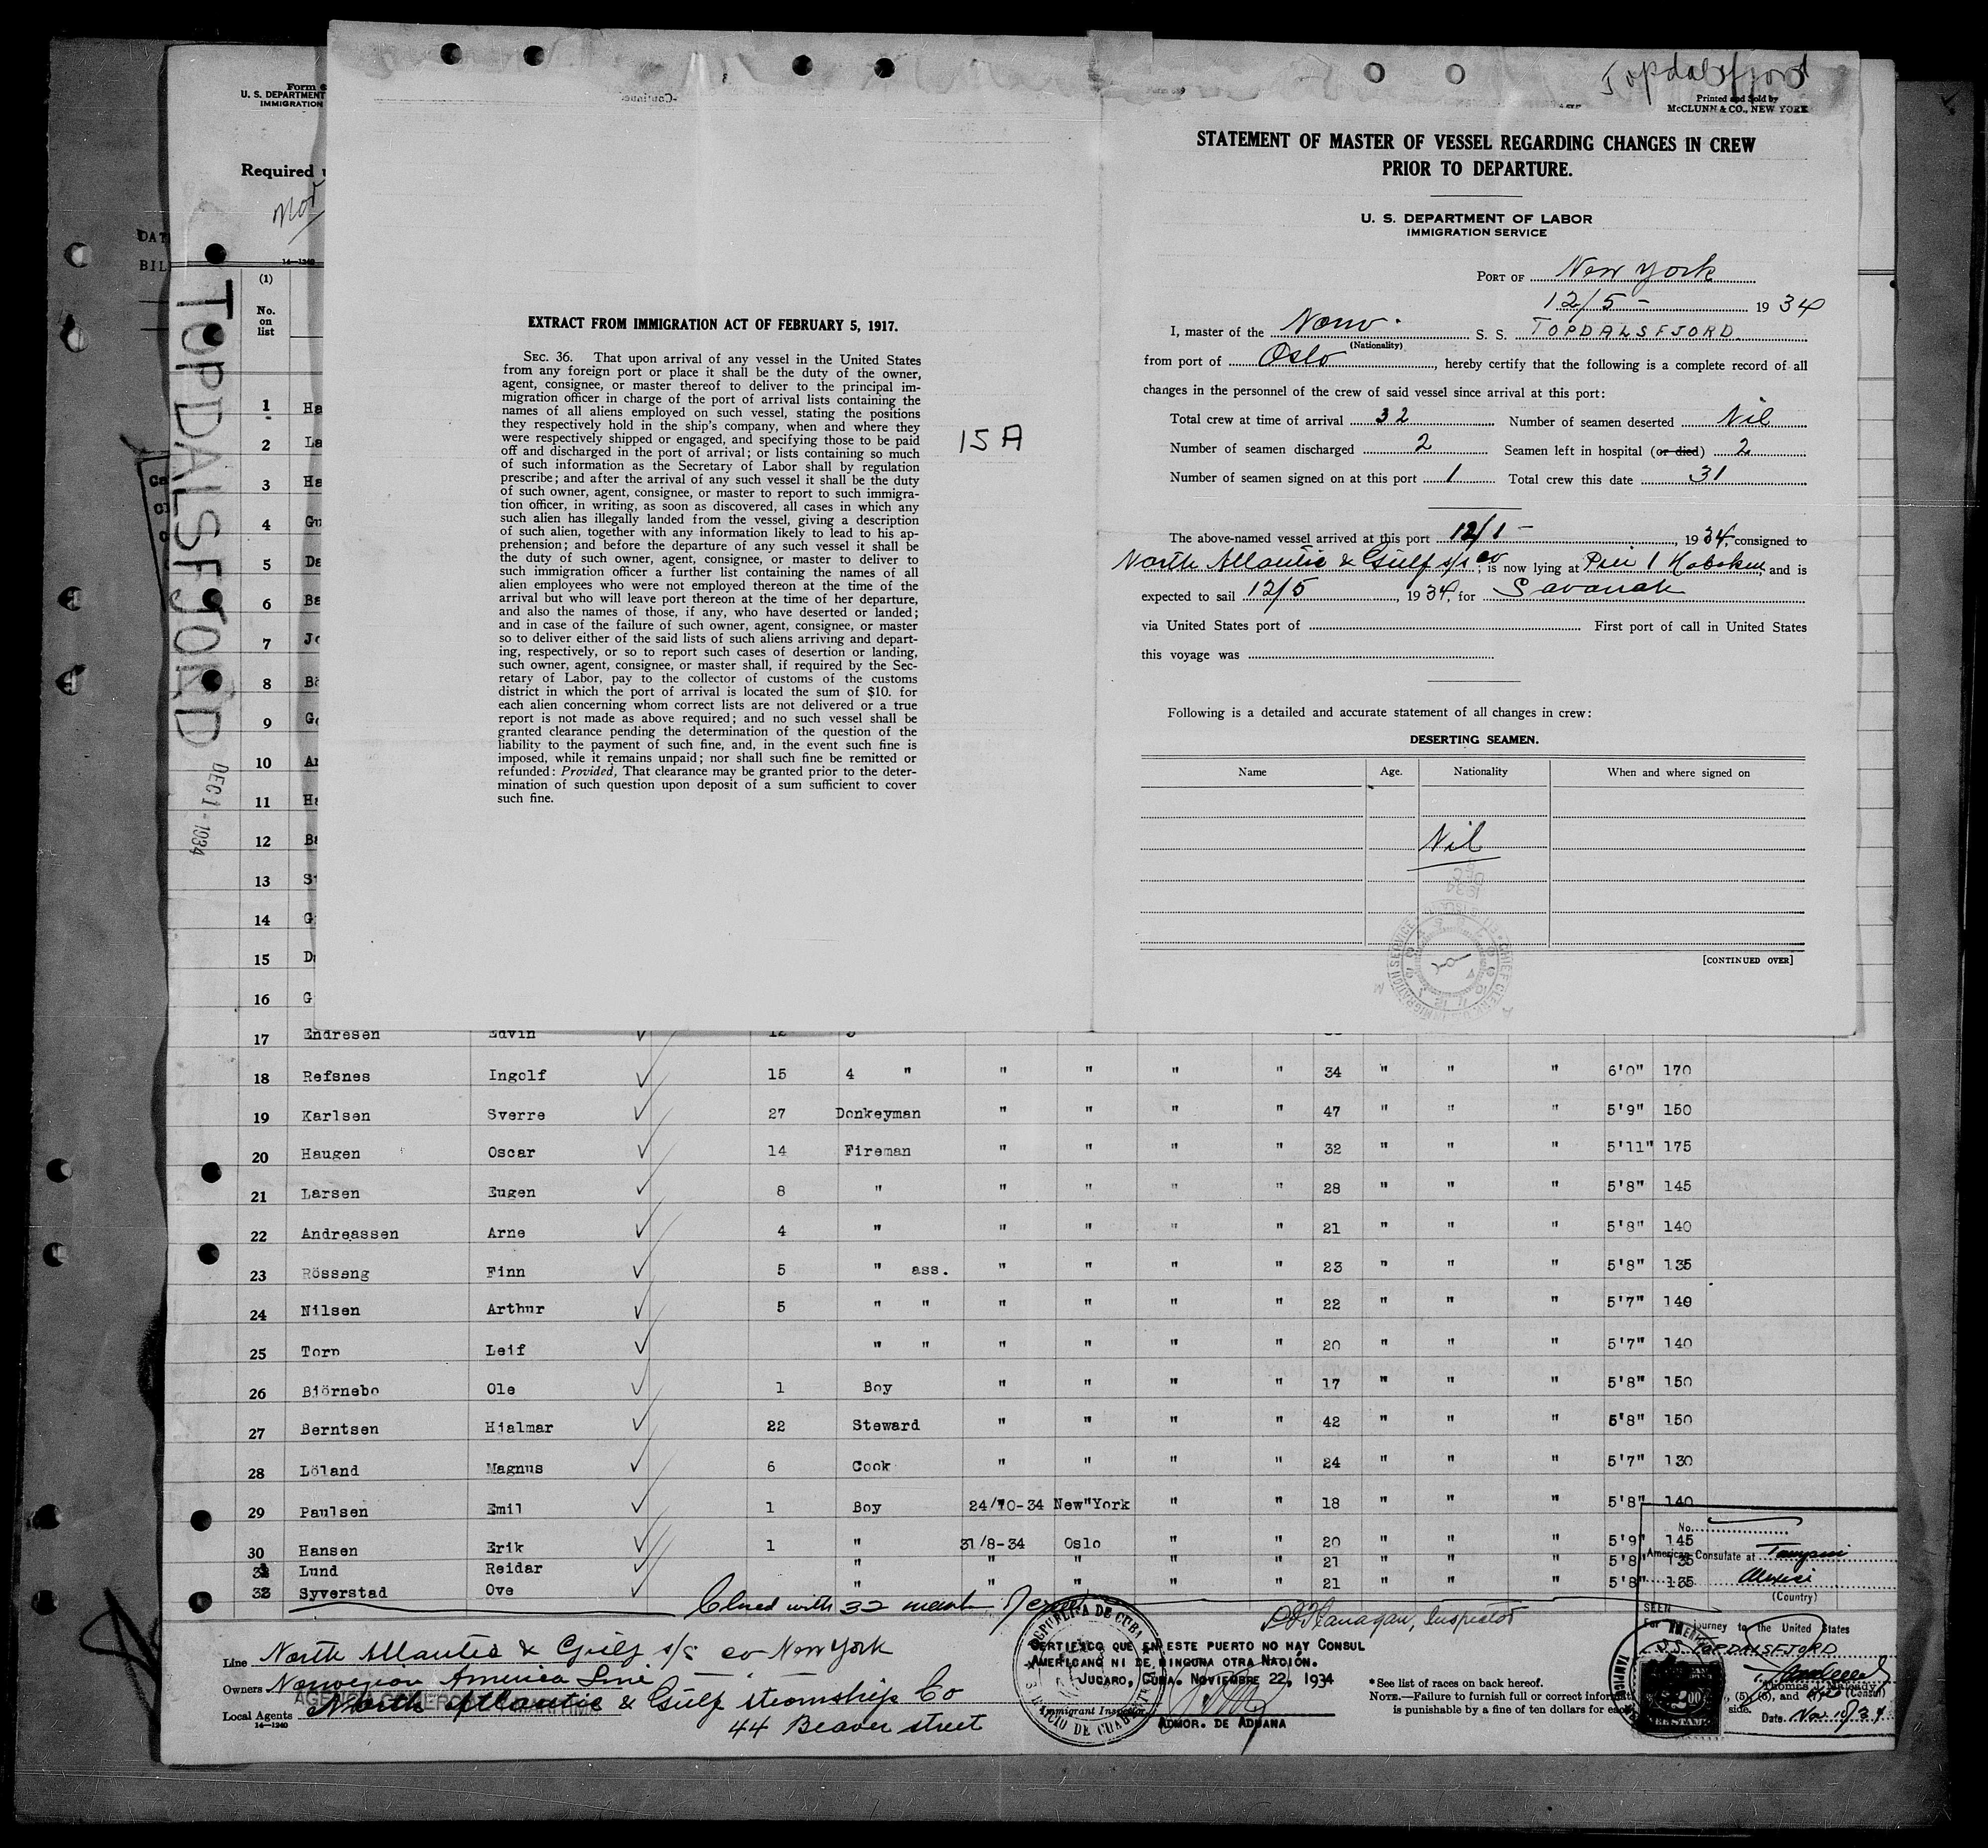 Topdalsfjord
Printed and Sold by
McCLUNN & CO., NEW YORK
STATEMENT OF MASTER OF VESSEL REGARDING CHANGES IN CREW
PRIOR TO DEPARTURE.
U. S. DEPARTMENT OF LABOR
IMMIGRATION SERVICE
PORT OF New York
12/5- 1934
I, master of the Norw. S. S. TOPDALSFJORD
(Nationality)
from port of Oslo, hereby certify that the following is a complete record of all
changes in the personnel of the crew of said vessel since arrival at this port:
Total crew at time of arrival 32 Number of seamen deserted Nil
Number of seamen discharged 2 Seamen left in hospital (or died) 2
Number of seamen signed on at this port 1 Total crew this date 31
The above-named vessel arrived at this port 12/1- , 1934, consigned to
North Atlantic & Gulf s/s co; is now lying at Pier 1 Hoboken, and is
expected to sail 12/5, 1934, for Savanah
via United States port of First port of call in United States
this voyage was
Following is a detailed and accurate statement of all changes in crew:
DESERTING SEAMEN.
Name Age. Nationality When and where signed on
Nil
[CONTINUED OVER]
EXTRACT FROM IMMIGRATION ACT OF FEBRUARY 5, 1917.
SEC. 36. That upon arrival of any vessel in the United States
from any foreign port or place it shall be the duty of the owner,
agent, consignee, or master thereof to deliver to the principal im-
migration officer in charge of the port of arrival lists containing the
names of all aliens employed on such vessel, stating the positions
they respectively hold in the ship's company, when and where they
were respectively shipped or engaged, and specifying those to be paid
off and discharged in the port of arrival; or lists containing so much
of such information as the Secretary of Labor shall by regulation
prescribe; and after the arrival of any such vessel it shall be the duty
of such owner, agent, consignee, or master to report to such immigra-
tion officer, in writing, as soon as discovered, all cases in which any
such alien has illegally landed from the vessel, giving a description
of such alien, together with any information likely to lead to his ap-
prehension; and before the departure of any such vessel it shall be
the duty of such owner, agent, consignee, or master to deliver to
such immigration officer a further list containing the names of all
alien employees who were not employed thereon at the time of the
arrival but who will leave port thereon at the time of her departure,
and also the names of those, if any, who have deserted or landed;
and in case of the failure of such owner, agent, consignee, or master
so to deliver either of the said lists of such aliens arriving and depart-
ing, respectively, or so to report such cases of desertion or landing,
such owner, agent, consignee, or master shall, if required by the Sec-
retary of Labor, pay to the collector of customs of the customs
district in which the port of arrival is located the sum of $10. for
each alien concerning whom correct lists are not delivered or a true
report is not made as above required; and no such vessel shall be
granted clearance pending the determination of the question of the
liability to the payment of such fine, and, in the event such fine is
imposed, while it remains unpaid; nor shall such fine be remitted or
refunded: Provided, That clearance may be granted prior to the deter-
mination of such question upon deposit of a sum sufficient to cover
such fine.
15A
Form
U. S. DEPARTMENT
IMMIGRATION
Required
Nor
14-1240
TOPDALSFJORD
DEC 1-1934
(1)
No.
on
list
1 Ha
2 La
3 Ha
4 Gu
5 Da
6 Ba
7 Jo
8 Bö
9 Go
10 An
11 Ha
12 Ba
13 St
14 G
15 D
16 G
17 Endresen Edvin 12
18 Refsnes Ingolf 15 4 " " " " " 34 " " " 6'0" 170
19 Karlsen Sverre 27 Donkeyman " " " " 47 " " " 5'9" 150
20 Haugen Oscar 14 Fireman " " " " 32 " " " 5'11" 175
21 Larsen Eugen 8 " " " " " 28 " " " 5'8" 145
22 Andreassen Arne 4 " " " " " 21 " " " 5'8" 140
23 Rösseng Finn 5 " ass. " " " " 23 " " " 5'8" 135
24 Nilsen Arthur 5 " " " " " " 22 " " " 5'7" 140
25 Torp Leif " " " " " " 20 " " " 5'7" 140
26 Björnebo Ole 1 Boy " " " " 17 " " " 5'8" 150
27 Berntsen Hjalmar 22 Steward " " " " 42 " " " 5'8" 150
28 Löland Magnus 6 Cook " " " " 24 " " " 5'7" 130
29 Paulsen Emil 1 Boy 24/10-34 New"York " " 18 " " " 5'8" 140
30 Hansen Erik 1 " 31/8-34 Oslo " " 20 " " " 5'9" 145
31 Lund Reidar " " " " " 21 " " " 5'8" 135
32 Syverstad Ove " " " " " 21 " " " 5'8" 135
Closed with 32
Flanagan, Inspector
Line North Atlantic & Gulf s/s co New York
Owners Norwegian America Line
Local Agents North Atlantic & Gulf steamship Co
44 Beaver street
14-1240
REPUBLICA DE CUBA
CERTIFICO QUE EN ESTE PUERTO NO HAY CONSUL
AMERICANO NI DE NINGUNA OTRA NACION.
JUCARO, CUBA. NOVIEMBRE 22, 1934
Immigrant Inspector
ADMOR. DE ADUANA
*See list of races on back hereof.
NOTE.—Failure to furnish full or correct , (5), (6), and
is punishable by a fine of ten dollars for each side.
No.
American Consulate at Tampico
Mexico
(Country)
SEEN
For journey to the United States
S.S. TOPDALSFJORD
(Consul)
Date